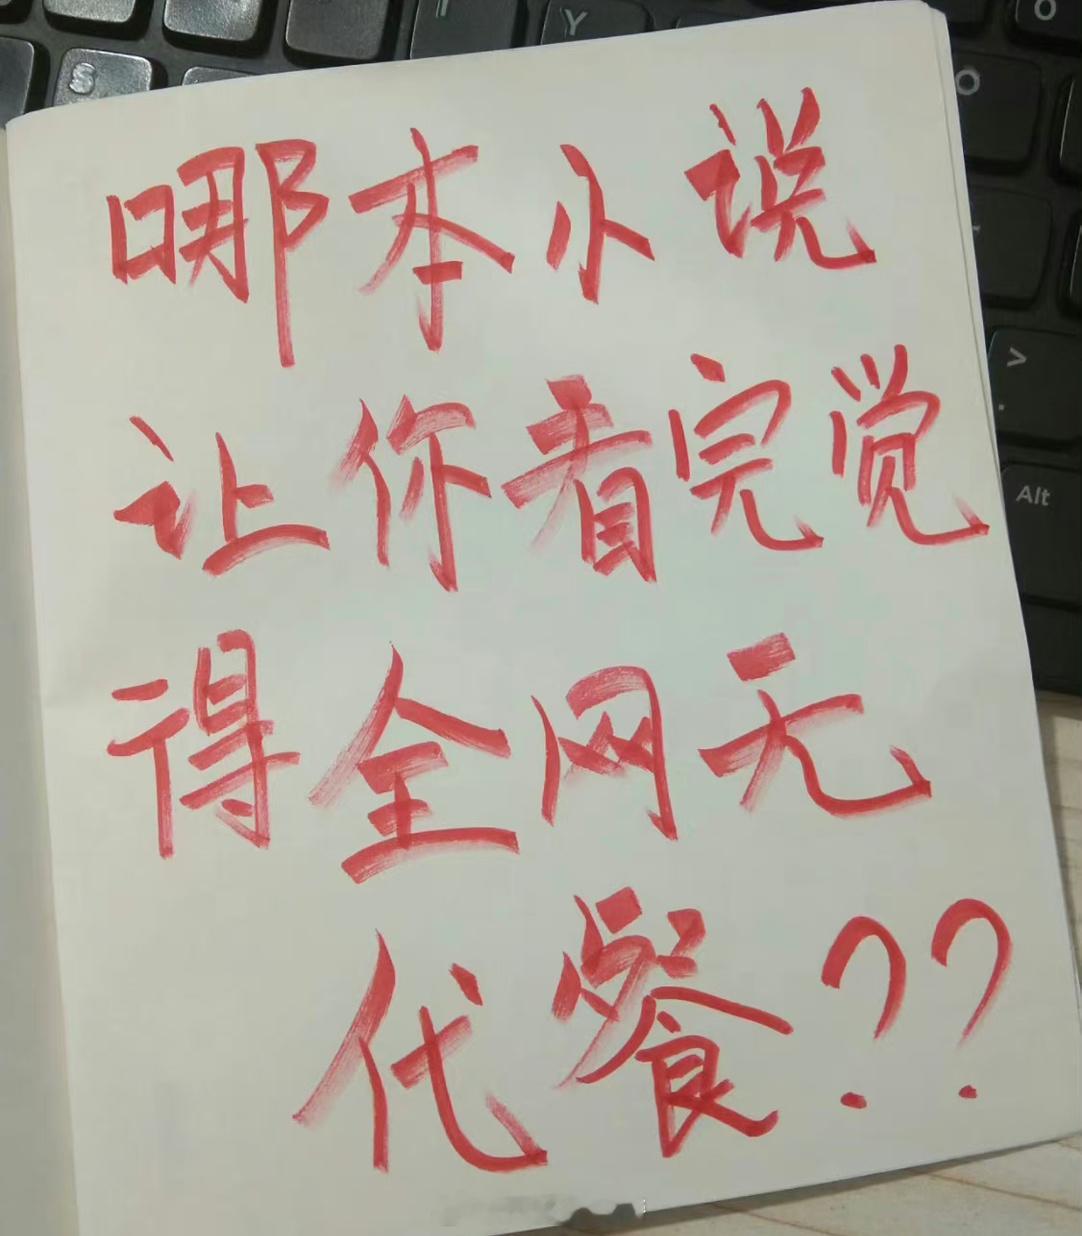 Y
O
S
O
哪本小说
>
.
让你看完觉
Alt
得全网无
代餐??